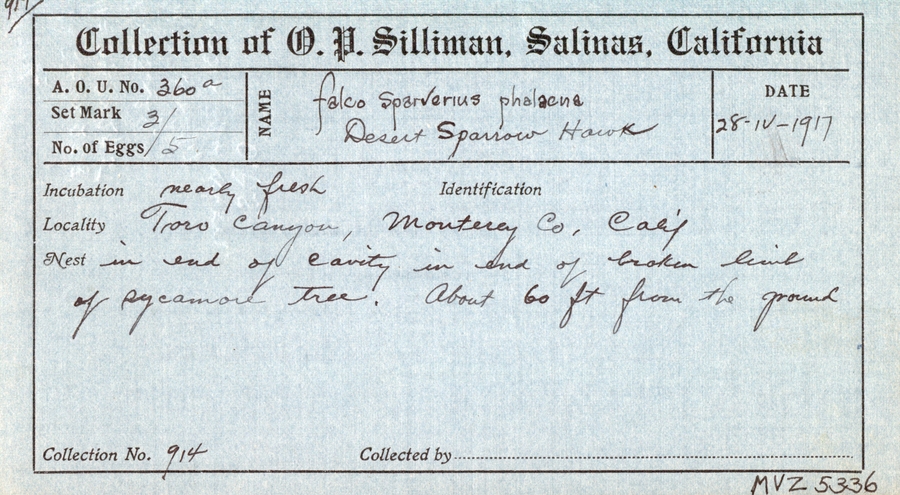 Collection of O. P. Silliman, Salinas, California
A. O. U. No. 360a
Set Mark 3/
No. of Eggs /5
NAME
falco sparverius phalaena
Desert Sparrow Hawk
DATE
28-IV-1917
Incubation nearly fresh Identification
Locality Toro Canyon, Monterey Co, Calif
Nest in end of cavity in end of broken limb
of sycamore tree. About 60 ft from the ground
Collection No. 914 Collected by
MVZ 5336